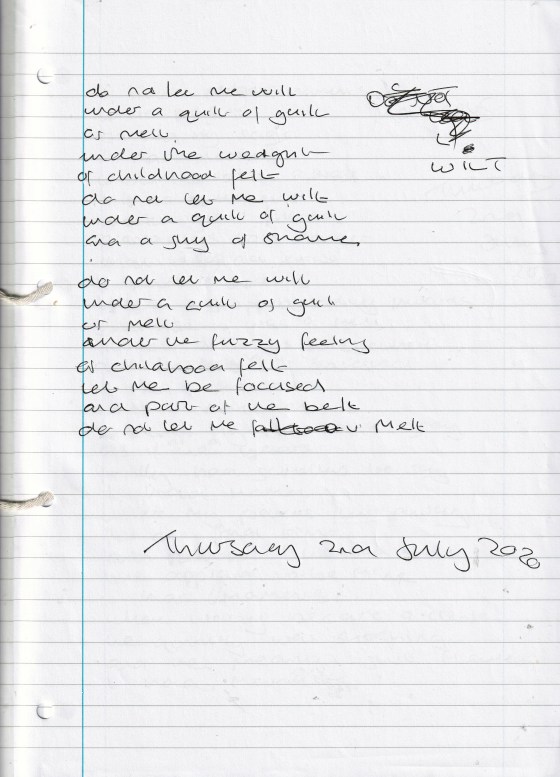 do not let me wilt
under a quilt of guilt
or melt
under the weight
of childhood felt
do not let me wilt
under a quilt of guilt
and a sky of shame
WILT
do not let me wilt
under a quilt of guilt
or melt
under the fuzzy feeling
of childhood felt
let me be focused
and part of the belt
do not let me melt
Thursday 2nd July 2020